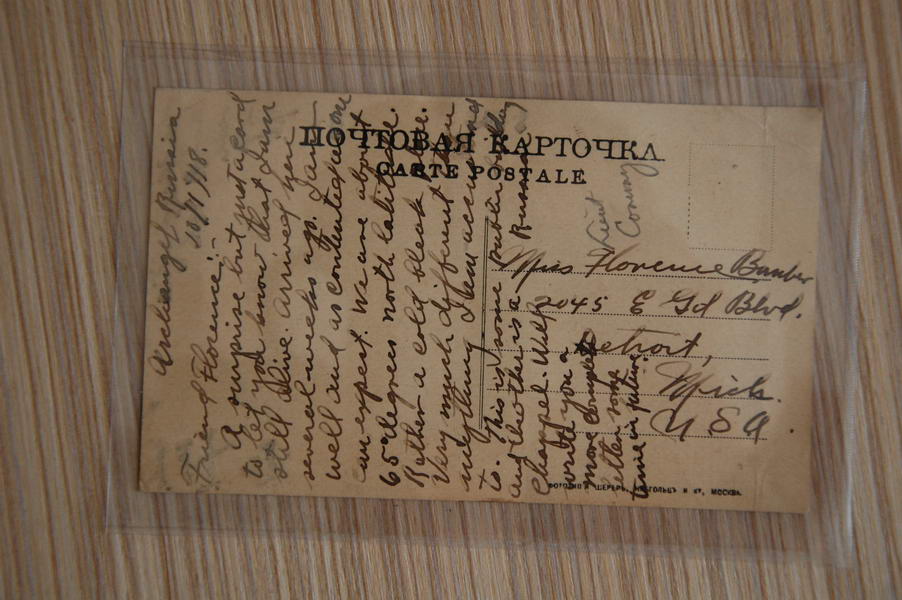 ПОЧТОВАЯ КАРТОЧКА
CARTE POSTALE
Archangel Russia
10/7/18.
Friend Florence:
A surprise but just a card
to let you know that I am
still alive. arrived here
several weeks ago. I am
well and as contented as one
can expect. We are about
65 degrees north latitude.
Rather a cold bleak place.
Very much different than
anything I been accustomed
to. This is some public bldg
and the other is a Russian
Chappel. Will
write you a
more complete
letter some
time in future.
Miss Florence Bunker
2045 E Gd Blvd.
Detroit,
Mich.
U.S.A.
ШЕРЕРЪ, НАБГОЛЬЦЪ И Кº, МОСКВА.